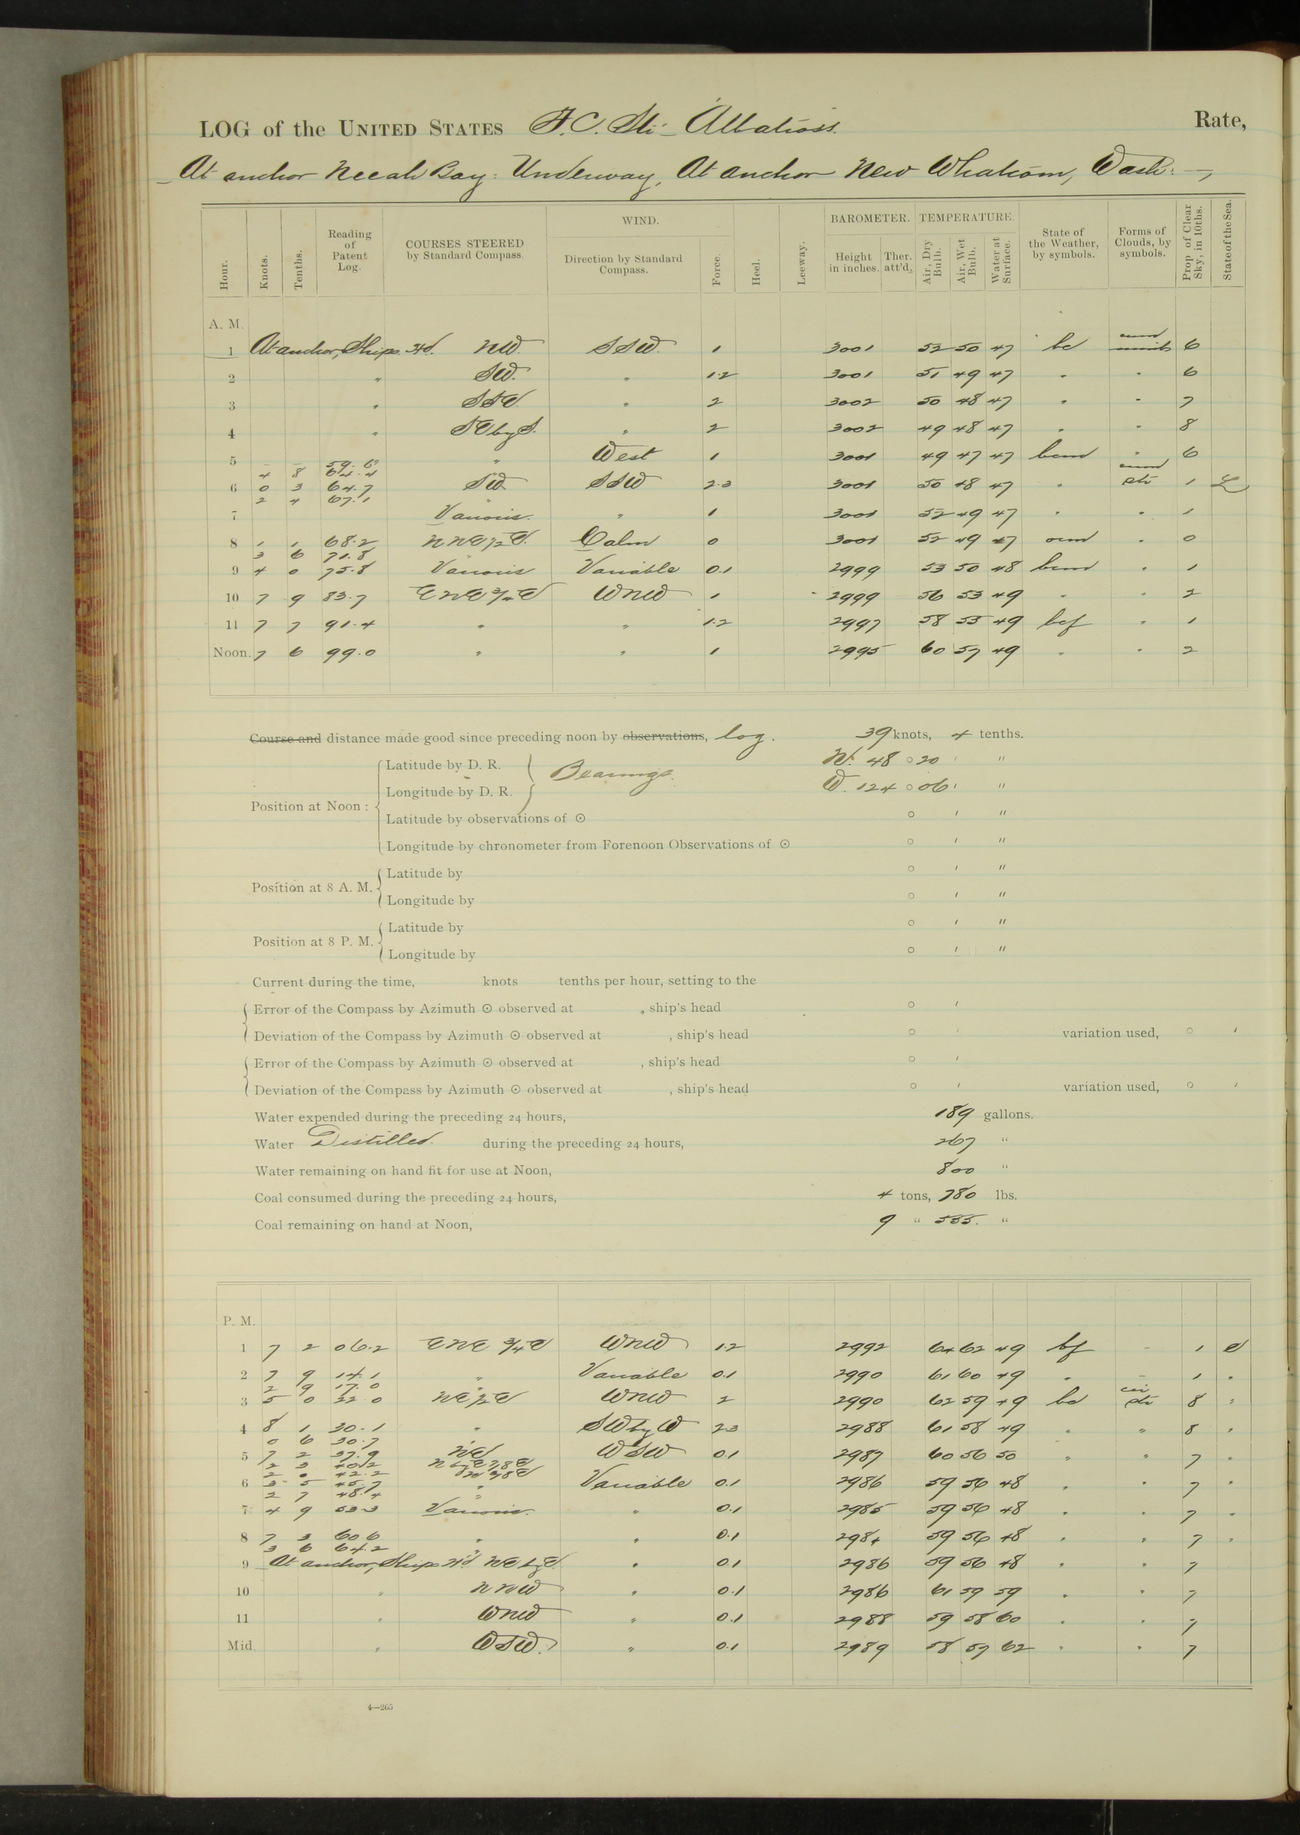 LOG of the UNITED STATES F.C. Str. Albatross. Rate,
At anchor Neeah Bay: Underway, At anchor New Whatcom, Wash:
Hour. Knots. Tenths. Reading of Patent Log. COURSES STEERED by Standard Compass. WIND. Direction by Standard Compass. Force. Heel. Leeway. BAROMETER. Height in inches. Ther. att'd. TEMPERATURE. Air, Dry Bulb. Air, Wet Bulb. Water at Surface. State of the Weather, by symbols. Forms of Clouds, by symbols. Prop. of Clear Sky, in 10ths. State of the Sea.
A. M.
1 At anchor, Ships Hd. NW. SSW. 1 3001 52 50 47 bc 6
2 " SW. " 1.2 3001 51 49 47 " " 6
3 " SSE " 2 3002 50 48 47 " " 7
4 " SE by S. " 2 3002 49 48 47 " " 8
5 - - 59.6 " West 1 3001 49 47 47 bcm " 6
4 8 64.4
6 0 3 64.7 SW. SSW 2.3 3001 50 48 47 " 1
2 4 67.1 "
7 Various. " 1 3001 52 49 47 " " 1
8 1 1 68.2 NNE 1/2 E. Calm 0 3001 52 49 47 ocm " 0
3 6 71.8
9 4 0 75.8 Various Variable 0.1 2999 53 50 48 bcm " 1
10 7 9 83.7 ENE 3/4 E WNW 1 2999 56 53 49 " " 2
11 7 7 91.4 " " 1.2 2997 58 55 49 bcf " 1
Noon. 7 6 99.0 " " 1 2995 60 57 49 " " 2
Course and distance made good since preceding noon by observations, log. 39 knots, 4 tenths.
Position at Noon: Latitude by D. R. Bearings. N. 48 ° 20 ' "
Longitude by D. R. W. 124 ° 06 ' "
Latitude by observations of ☉ ° ' "
Longitude by chronometer from Forenoon Observations of ☉ ° ' "
Position at 8 A. M. Latitude by ° ' "
Longitude by ° ' "
Position at 8 P. M. Latitude by ° ' "
Longitude by ° ' "
Current during the time, knots tenths per hour, setting to the
Error of the Compass by Azimuth ☉ observed at , ship's head ° '
Deviation of the Compass by Azimuth ☉ observed at , ship's head ° ' variation used, ° '
Error of the Compass by Azimuth ☉ observed at , ship's head ° '
Deviation of the Compass by Azimuth ☉ observed at , ship's head ° ' variation used, ° '
Water expended during the preceding 24 hours, 189 gallons.
Water Distilled. during the preceding 24 hours, 267 "
Water remaining on hand fit for use at Noon, 800 "
Coal consumed during the preceding 24 hours, 4 tons, 780 lbs.
Coal remaining on hand at Noon, 9 " 555. "
P. M.
1 7 2 06.2 ENE 3/4 E WNW 1.2 2992 64 62 49 bf - 1
2 7 9 14.1 " Variable 0.1 2990 61 60 49 " - 1 "
2 9 17.0 "
3 5 0 22.0 NE 1/2 E WNW 2 2990 62 59 49 bc 8 "
4 8 1 30.1 " SW by W 2.3 2988 61 58 49 " " 8 "
0 6 30.7 "
5 7 2 37.9 NE WSW 0.1 2987 60 56 50 " " 7 "
2 3 40.2 N by E 7/8 E
2 0 42.2
6 3 5 45.7 " Variable 0.1 2986 59 56 48 " " 7 "
2 7 48.4 "
7 4 9 53.3 Various. " 0.1 2985 59 56 48 " " 7 "
8 7 3 60.6 " " 0.1 2984 59 56 48 " " 7 "
3 6 64.2 "
9 At anchor, Ships Hd NE by E. " 0.1 2986 59 56 48 " " 7
10 " NNW " 0.1 2986 61 59 59 " " 7
11 " WNW " 0.1 2988 59 58 60 " " 7
Mid. " WSW. " 0.1 2989 58 57 62 " " 7
4—265